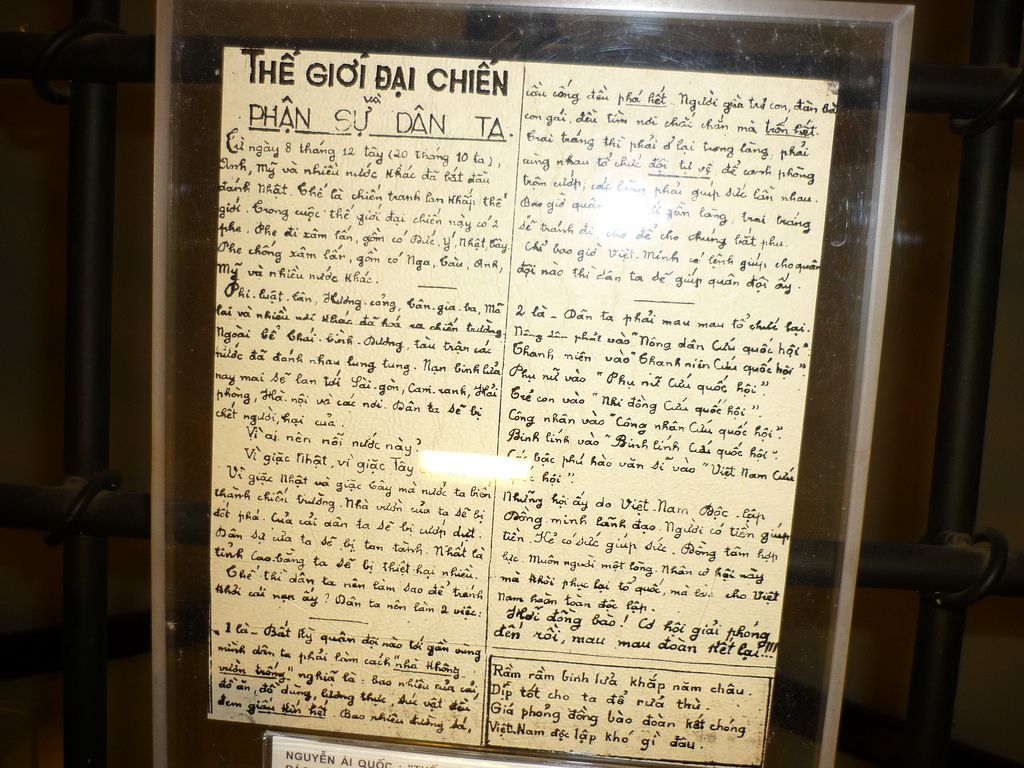 THẾ GIỚI ĐẠI CHIẾN
và
PHẬN SỰ DÂN TA.
Từ ngày 8 tháng 12 tây (20 tháng 10 ta),
Anh, Mỹ và nhiều nước khác đã bắt đầu
đánh Nhật. Thế là chiến tranh lan khắp thế
giới. Trong cuộc thế giới đại chiến này có 2
phe. Phe đi xâm lấn, gồm có Đức, Ý, Nhật, Tây
Phe chống xâm lấn, gồm có Nga, Tàu, Anh,
Mỹ và nhiều nước khác.
Phi-luật-tân, Hương-cảng, Tân-gia-ba, Mã
lai và nhiều nơi khác đã hoá ra chiến trường.
Ngoài bể Thái-bình-Dương, tàu trận các
nước đã đánh nhau lung tung. Nạn binh lửa
nay mai sẽ lan tới Sài-gòn, Cam-ranh, Hải
phòng, Hà-nội và các nơi. Dân ta sẽ bị
chết người, hại của.
Vì ai nên nỗi nước này,
Vì giặc Nhật, vì giặc Tây
Vì giặc Nhật và giặc Tây mà nước ta biến
thành chiến trường. Nhà vườn của ta sẽ bị
đốt phá. Của cải dân ta sẽ bị cướp dựt.
Dân sự của ta sẽ bị tan tành. Nhất là
tỉnh Cao-bằng ta sẽ bị thiệt hại nhiều.
Thế thì dân ta nên làm sao để tránh
khỏi cái nạn ấy? Dân ta nên làm 2 việc.
1 là - Bất kỳ quân đội nào tới gần vùng
mình dân ta phải làm cách "nhà không
vườn trống" nghĩa là: bao nhiêu của cải,
đồ ăn, đồ dùng, lương thực, súc vật đều
đem giấu kín hết. Bao nhiêu đường sá,
cầu cống đều phá hết. Người già trẻ con, đàn bà
con gái, đều tìm nơi chắc chắn mà trốn hết.
Trai tráng thì phải ở lại trong làng, phải
cùng nhau tổ chức đội tự vệ để canh phòng
trộm cướp; các làng phải giúp sức lẫn nhau.
Bao giờ quân gần làng, trai tráng
sẽ tránh đi, chớ để cho chúng bắt phu.
Chỉ bao giờ Việt-Minh có lệnh giúp cho quân
đội nào thì dân ta sẽ giúp quân đội ấy.
2 là - Dân ta phải mau mau tổ chức lại.
Nông dân phải vào "Nông dân Cứu quốc hội".
Thanh niên vào "Thanh niên Cứu quốc hội"
Phụ nữ vào "Phụ nữ Cứu quốc hội".
Trẻ con vào "Nhi đồng Cứu quốc hội"
Công nhân vào "Công nhân Cứu quốc hội".
Binh lính vào "Binh lính Cứu quốc hội".
Các bậc phú hào văn sĩ vào "Việt Nam Cứu
hội".
Những hội ấy do Việt-Nam Độc-lập
Đồng minh lãnh đạo. Người có tiền giúp
tiền. Kẻ có sức giúp sức. Đồng tâm hợp
lực. Muôn người một lòng. Nhân cơ hội này
mà khôi phục lại tổ quốc, mà làm cho Việt
Nam hoàn toàn độc lập.
Hỡi đồng bào! Cơ hội giải phóng
đến rồi, mau mau đoàn kết lại!!!
Rầm rầm binh lửa khắp năm châu.
Dịp tốt cho ta để rửa thù.
Giải phóng đồng bào đoàn kết chóng
Việt-Nam độc lập khó gì đâu.
NGUYỄN ÁI QUỐC